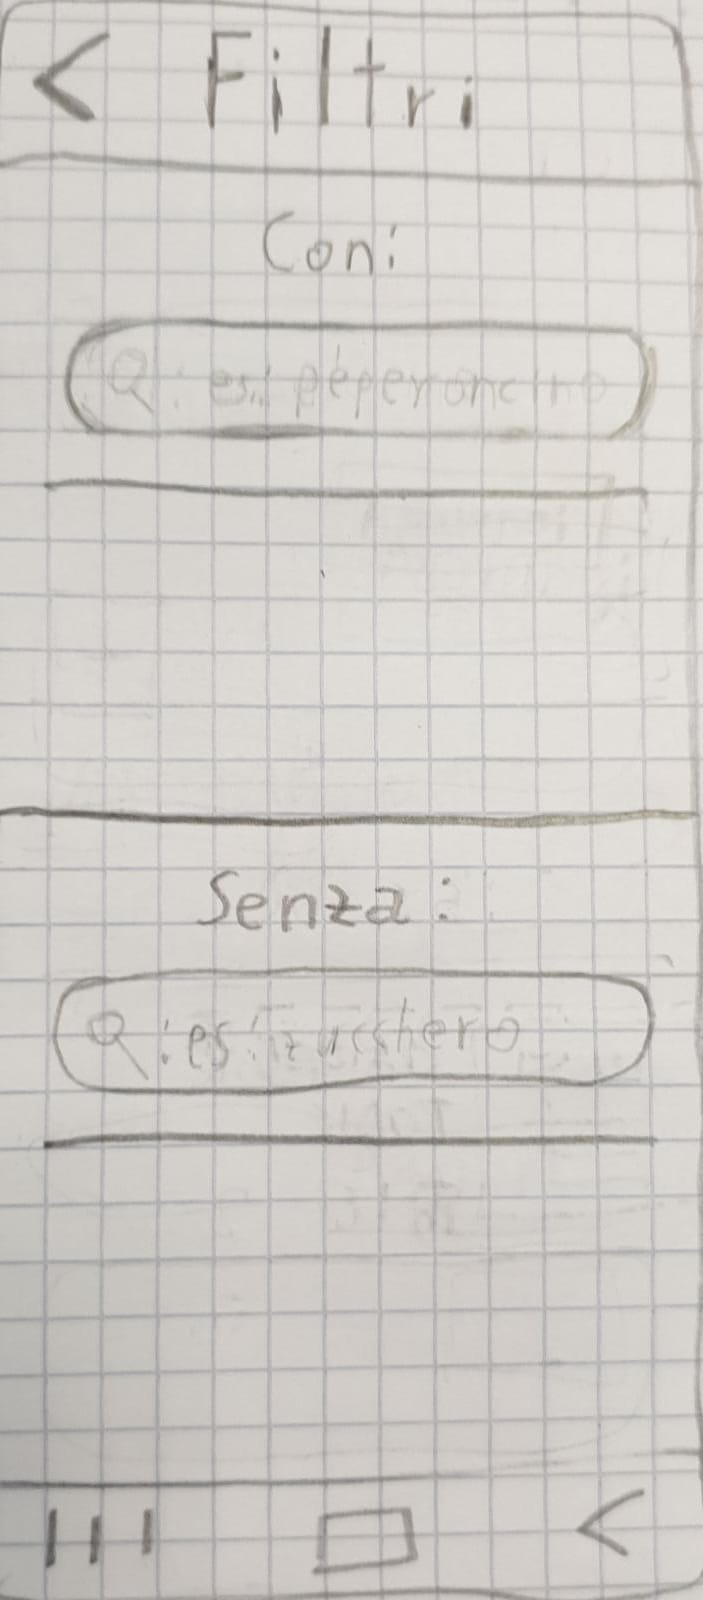 < Filtri
Con:
Q: es: peperoncino
Senza:
Q: es: zucchero